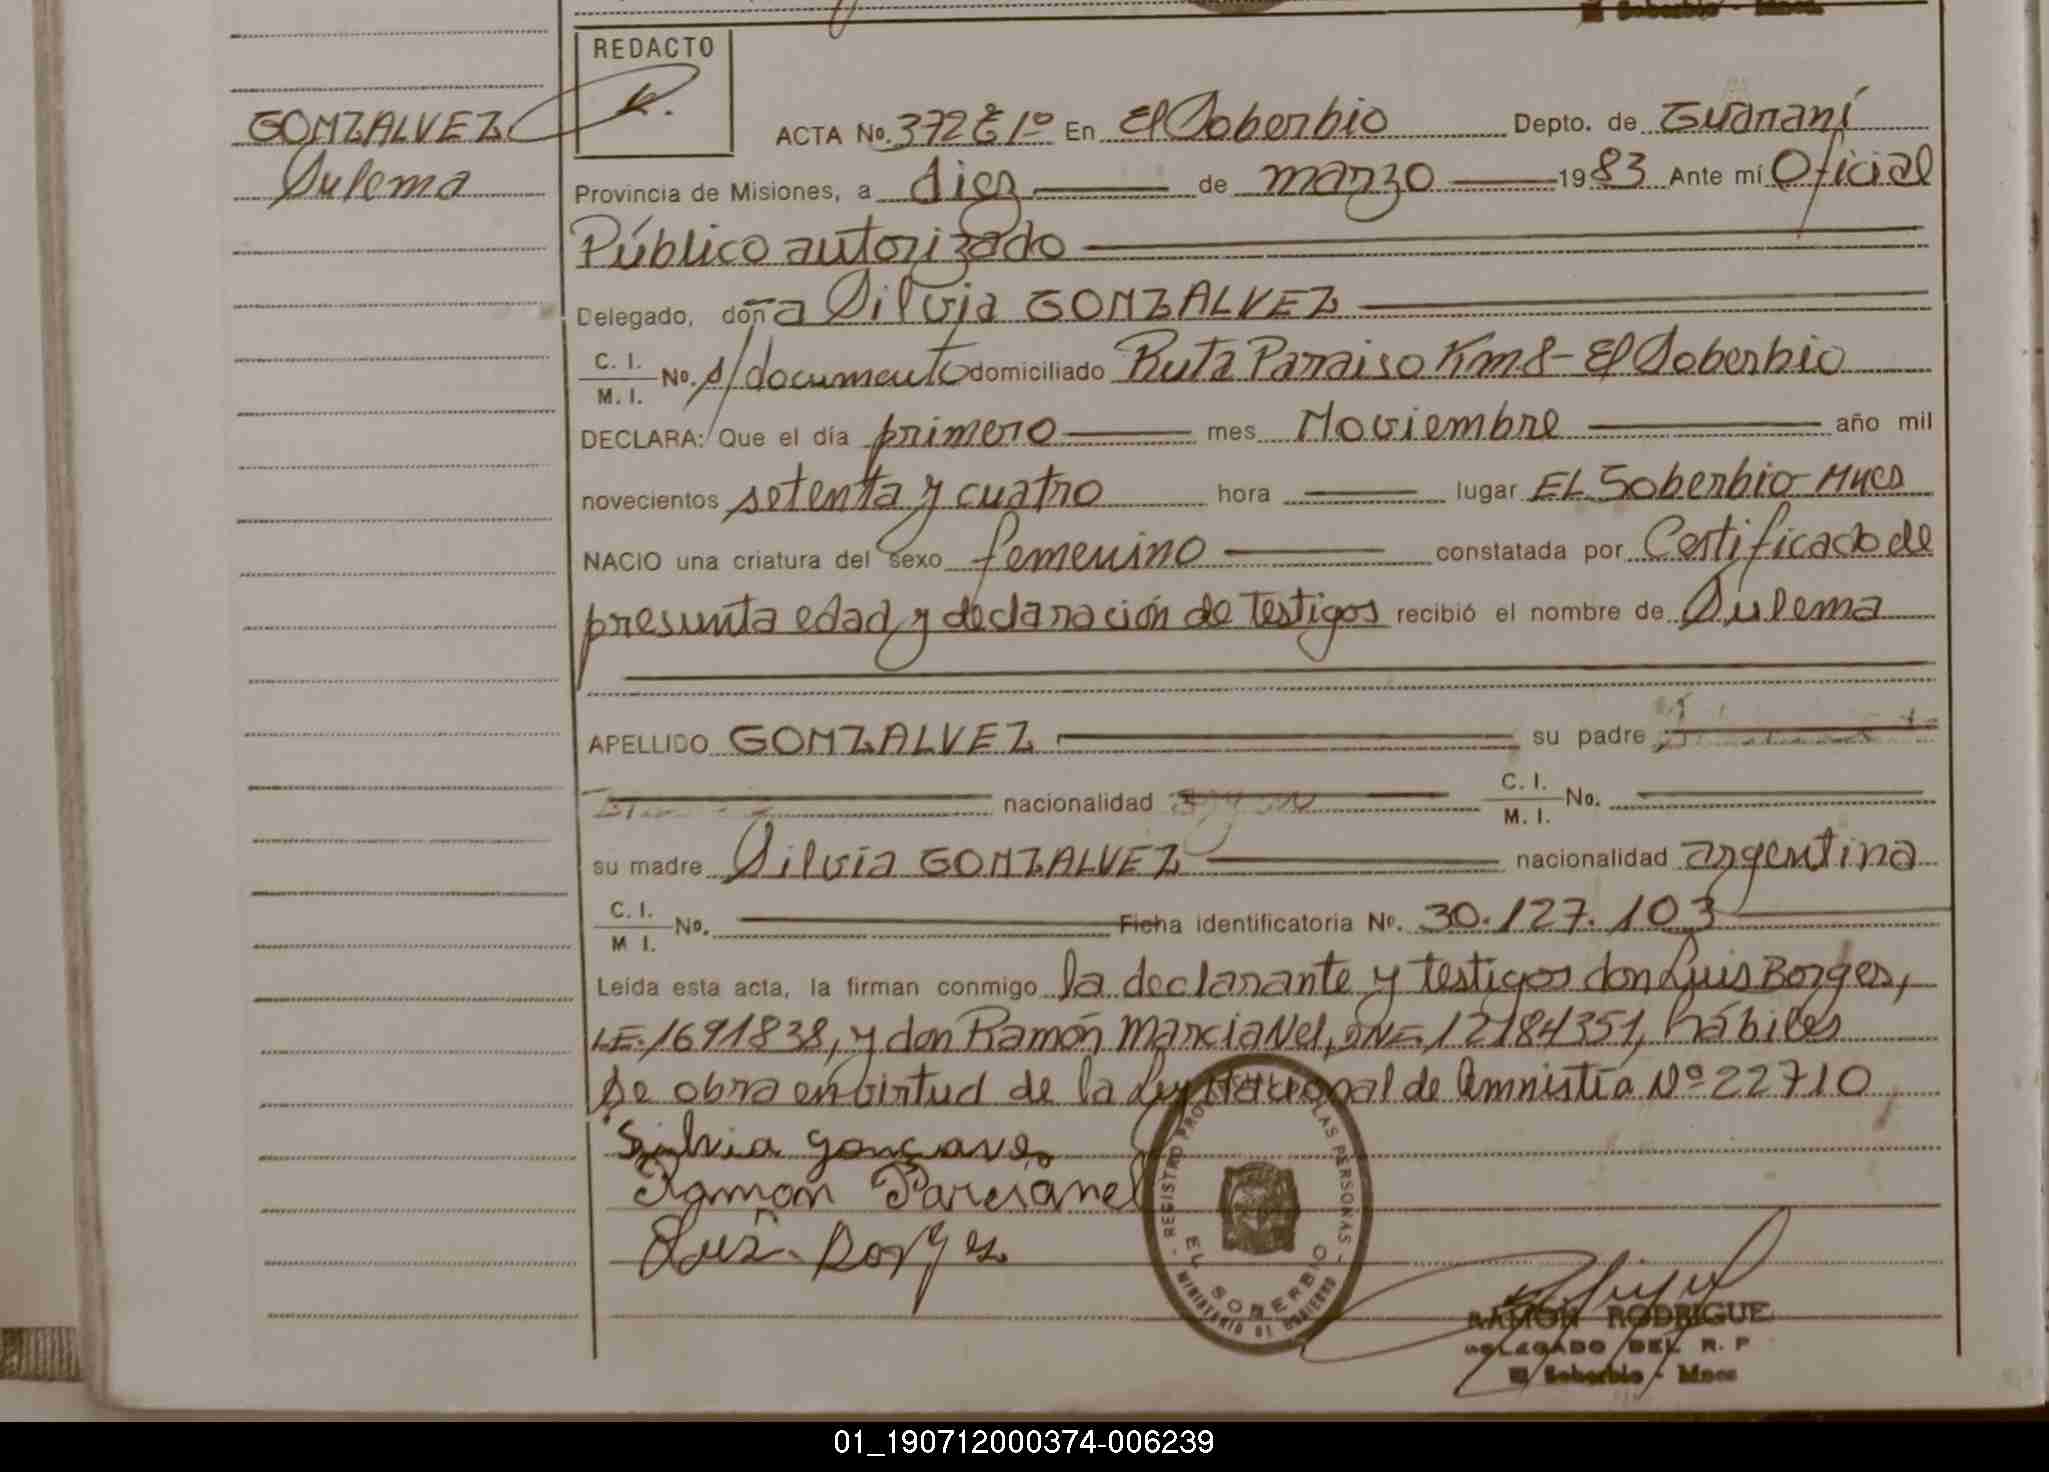 El Soberbio - Mnes.
REDACTO
GONZALVEZ
Sulema
ACTA No. 372 Eº 1º En El Soberbio Depto. de Guaraní
Provincia de Misiones, a diez de marzo 1983 Ante mí Oficial
Público autorizado
Delegado, doña Silvia GONZALVEZ
C. I.
M. I. No. s/documento domiciliado Ruta Paraiso Km 8 - El Soberbio
DECLARA: Que el día primero mes Noviembre año mil
novecientos setenta y cuatro hora lugar EL Soberbio - Mnes
NACIO una criatura del sexo femenino constatada por Certificado de
presunta edad y declaración de testigos recibió el nombre de Sulema
APELLIDO GONZALVEZ su padre
nacionalidad C. I.
M. I. No.
su madre Silvia GONZALVEZ nacionalidad argentina
C. I.
M I. No. Ficha identificatoria Nº. 30.127.103
Leída esta acta, la firman conmigo la declarante y testigos don Luis Borges,
LE. 1691838, y don Ramón Marcianel, DNE. 12184351, hábiles
Se obra en virtud de la Ley Nacional de Amnistía Nº 22710
Silvia gonçaves
Ramon Parcianel
Luis Borges
REGISTRO PROV. LAS PERSONAS
EL SOBERBIO
MINISTERIO DE GOBIERNO
RAMON RODRIGUE
DELEGADO DEL R. P
El Soberbio - Mnes
01_190712000374-006239